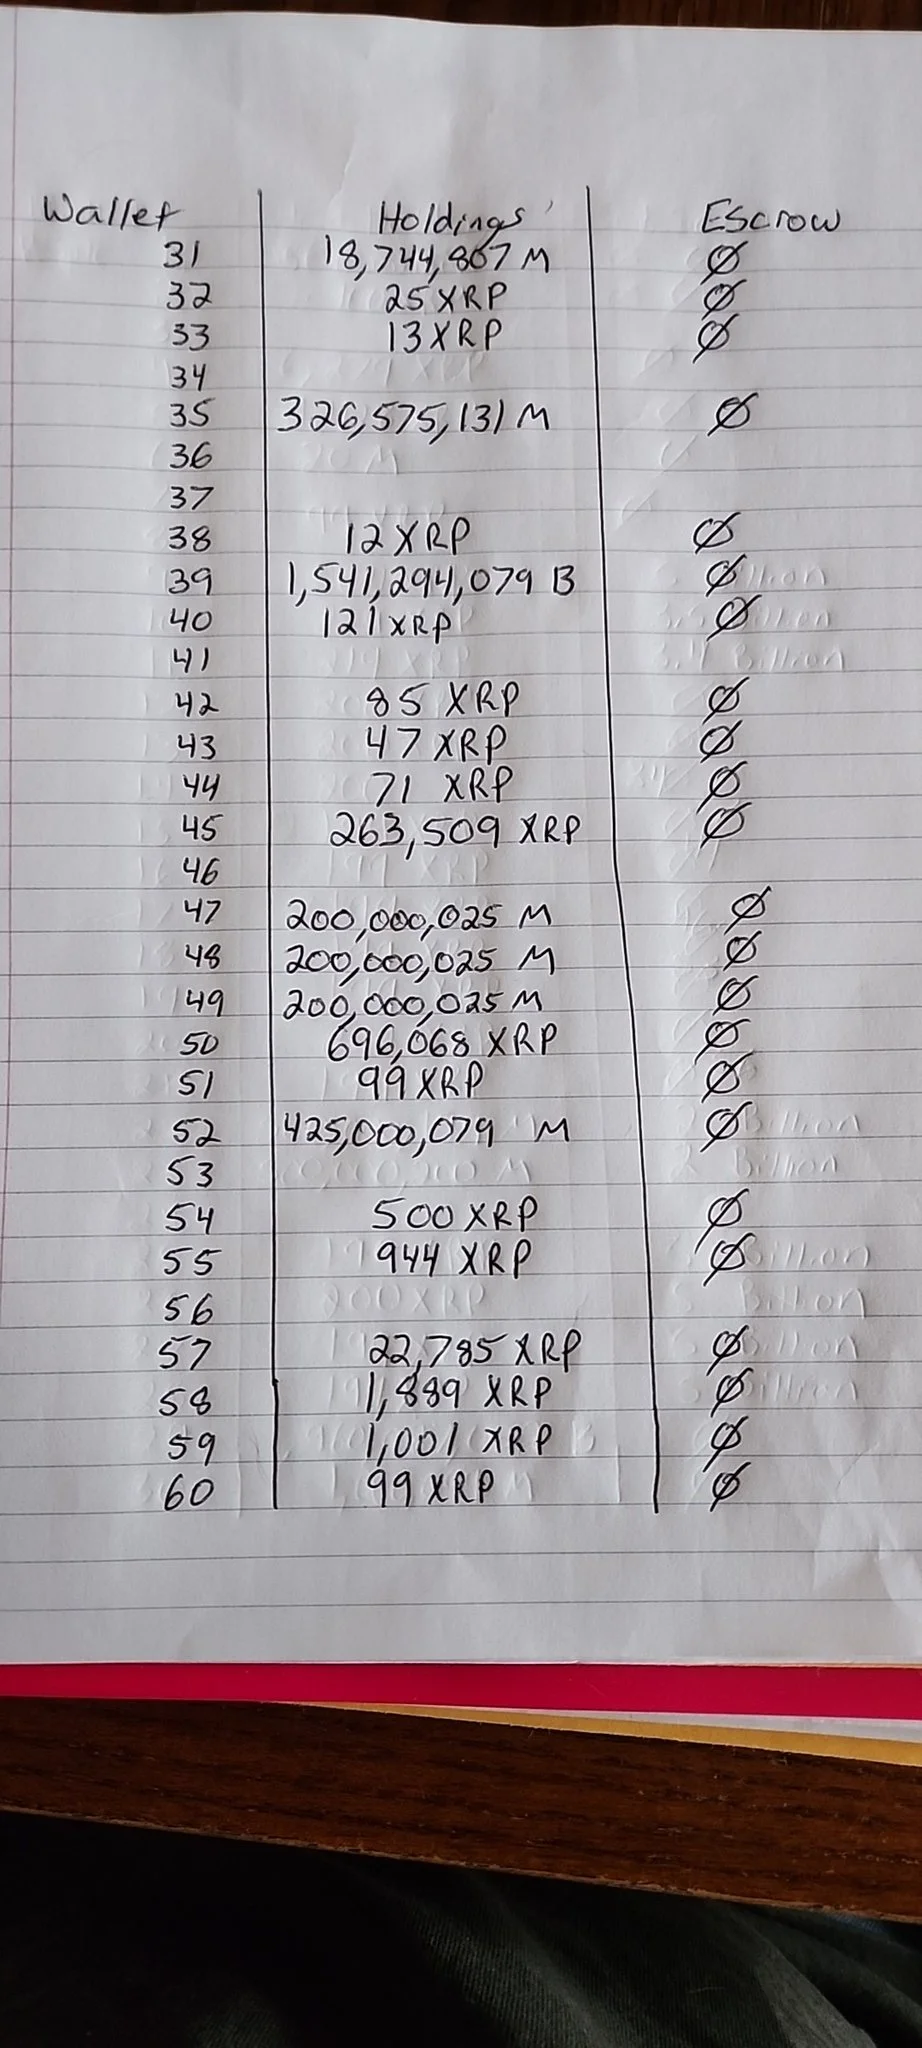 Wallet Holdings Escrow
31 18,744,807 M Ø
32 25 XRP Ø
33 13 XRP Ø
34
35 326,575,131 M Ø
36
37
38 12 XRP Ø
39 1,541,294,079 B Ø
40 121 XRP Ø
41
42 85 XRP Ø
43 47 XRP Ø
44 71 XRP Ø
45 263,509 XRP Ø
46
47 200,000,025 M Ø
48 200,000,025 M Ø
49 200,000,025 M Ø
50 696,068 XRP Ø
51 99 XRP Ø
52 425,000,079 M Ø
53
54 500 XRP Ø
55 944 XRP Ø
56
57 22,785 XRP Ø
58 1,889 XRP Ø
59 1,001 XRP Ø
60 99 XRP Ø